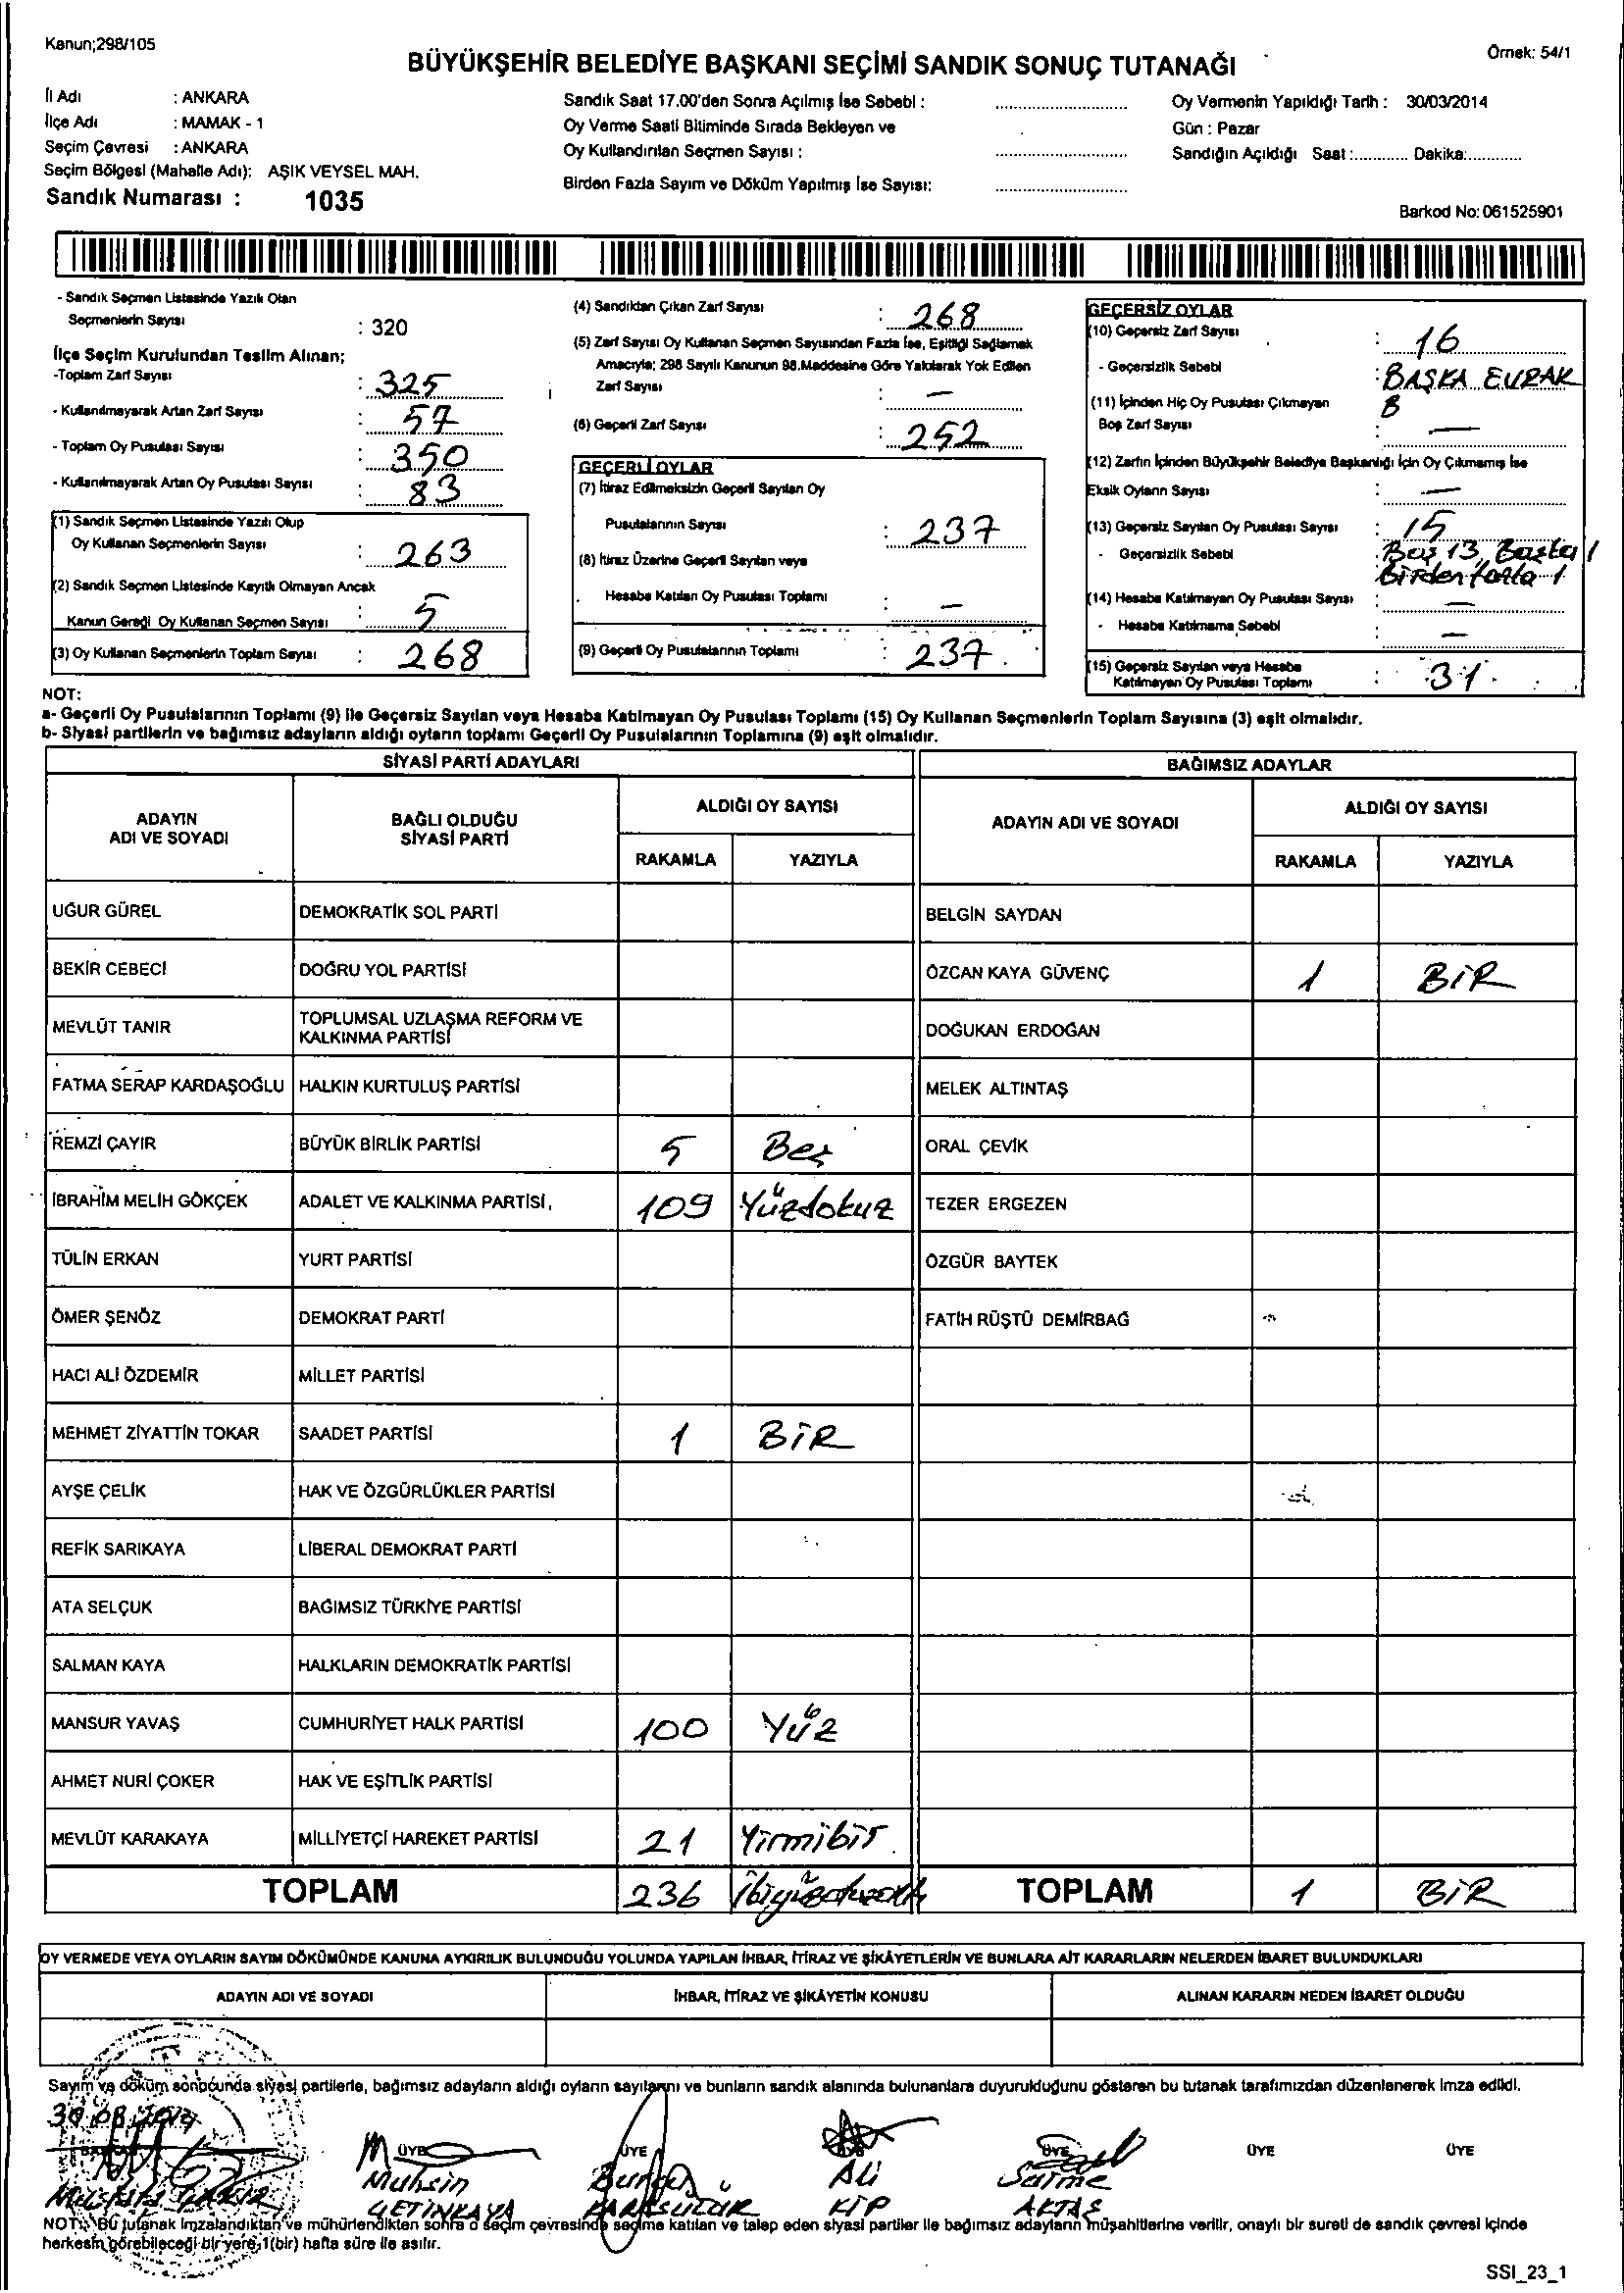 Kanun;298/105
Örnek: 54/1
BÜYÜKŞEHİR BELEDİYE BAŞKANI SEÇİMİ SANDIK SONUÇ TUTANAĞI
İl Adı : ANKARA
İlçe Adı : MAMAK - 1
Seçim Çevresi : ANKARA
Seçim Bölgesi (Mahalle Adı): AŞIK VEYSEL MAH.
Sandık Numarası : 1035
Sandık Saat 17.00'den Sonra Açılmış İse Sebebi :
Oy Verme Saati Bitiminde Sırada Bekleyen ve
Oy Kullandırılan Seçmen Sayısı :
Birden Fazla Sayım ve Döküm Yapılmış İse Sayısı:
Oy Vermenin Yapıldığı Tarih : 30/03/2014
Gün : Pazar
Sandığın Açıldığı Saat :............ Dakika:............
Barkod No: 061525901
- Sandık Seçmen Listesinde Yazılı Olan
Seçmenlerin Sayısı : 320
İlçe Seçim Kurulundan Teslim Alınan;
-Toplam Zarf Sayısı : 325
- Kullanılmayarak Artan Zarf Sayısı : 57
- Toplam Oy Pusulası Sayısı : 350
- Kullanılmayarak Artan Oy Pusulası Sayısı : 83
(1) Sandık Seçmen Listesinde Yazılı Olup
Oy Kullanan Seçmenlerin Sayısı : 263
(2) Sandık Seçmen Listesinde Kayıtlı Olmayan Ancak
Kanun Gereği Oy Kullanan Seçmen Sayısı : 5
(3) Oy Kullanan Seçmenlerin Toplam Sayısı : 268
(4) Sandıktan Çıkan Zarf Sayısı : 268
(5) Zarf Sayısı Oy Kullanan Seçmen Sayısından Fazla İse, Eşitliği Sağlamak
Amacıyla; 298 Sayılı Kanunun 98.Maddesine Göre Yakılarak Yok Edilen
Zarf Sayısı : —
(6) Geçerli Zarf Sayısı : 252
GEÇERLİ OYLAR
(7) İtiraz Edilmeksizin Geçerli Sayılan Oy
Pusulalarının Sayısı : 237
(8) İtiraz Üzerine Geçerli Sayılan veya
Hesaba Katılan Oy Pusulası Toplamı : —
(9) Geçerli Oy Pusulalarının Toplamı : 237
GEÇERSİZ OYLAR
(10) Geçersiz Zarf Sayısı : 16
- Geçersizlik Sebebi : BAŞKA EVRAK
(11) İçinden Hiç Oy Pusulası Çıkmayan
Boş Zarf Sayısı : —
(12) Zarfın İçinden Büyükşehir Belediye Başkanlığı İçin Oy Çıkmamış İse
Eksik Oyların Sayısı : —
(13) Geçersiz Sayılan Oy Pusulası Sayısı : 15
- Geçersizlik Sebebi Boş 13, Başka 1
Birden fazla 1
(14) Hesaba Katılmayan Oy Pusulası Sayısı : —
- Hesaba Katılmama Sebebi : —
(15) Geçersiz Sayılan veya Hesaba
Katılmayan Oy Pusulası Toplamı : 31
NOT:
a- Geçerli Oy Pusulalarının Toplamı (9) ile Geçersiz Sayılan veya Hesaba Katılmayan Oy Pusulası Toplamı (15) Oy Kullanan Seçmenlerin Toplam Sayısına (3) eşit olmalıdır.
b- Siyasi partilerin ve bağımsız adayların aldığı oyların toplamı Geçerli Oy Pusulalarının Toplamına (9) eşit olmalıdır.
SİYASİ PARTİ ADAYLARI
ADAYIN ADI VE SOYADI BAĞLI OLDUĞU SİYASİ PARTİ ALDIĞI OY SAYISI
RAKAMLA YAZIYLA
UĞUR GÜREL DEMOKRATİK SOL PARTİ
BEKİR CEBECİ DOĞRU YOL PARTİSİ
MEVLÜT TANIR TOPLUMSAL UZLAŞMA REFORM VE KALKINMA PARTİSİ
FATMA SERAP KARDAŞOĞLU HALKIN KURTULUŞ PARTİSİ
REMZİ ÇAYIR BÜYÜK BİRLİK PARTİSİ 5 Beş
İBRAHİM MELİH GÖKÇEK ADALET VE KALKINMA PARTİSİ 109 Yüzdokuz
TÜLİN ERKAN YURT PARTİSİ
ÖMER ŞENÖZ DEMOKRAT PARTİ
HACI ALİ ÖZDEMİR MİLLET PARTİSİ
MEHMET ZİYATTİN TOKAR SAADET PARTİSİ 1 BİR
AYŞE ÇELİK HAK VE ÖZGÜRLÜKLER PARTİSİ
REFİK SARIKAYA LİBERAL DEMOKRAT PARTİ
ATA SELÇUK BAĞIMSIZ TÜRKİYE PARTİSİ
SALMAN KAYA HALKLARIN DEMOKRATİK PARTİSİ
MANSUR YAVAŞ CUMHURİYET HALK PARTİSİ 100 Yüz
AHMET NURİ ÇOKER HAK VE EŞİTLİK PARTİSİ
MEVLÜT KARAKAYA MİLLİYETÇİ HAREKET PARTİSİ 21 Yirmibir
TOPLAM 236
BAĞIMSIZ ADAYLAR
ADAYIN ADI VE SOYADI ALDIĞI OY SAYISI
RAKAMLA YAZIYLA
BELGİN SAYDAN
ÖZCAN KAYA GÜVENÇ 1 BİR
DOĞUKAN ERDOĞAN
MELEK ALTINTAŞ
ORAL ÇEVİK
TEZER ERGEZEN
ÖZGÜR BAYTEK
FATİH RÜŞTÜ DEMİRBAĞ
TOPLAM 1 BİR
OY VERMEDE VEYA OYLARIN SAYIM DÖKÜMÜNDE KANUNA AYKIRILIK BULUNDUĞU YOLUNDA YAPILAN İHBAR, İTİRAZ VE ŞİKÂYETLERİN VE BUNLARA AİT KARARLARIN NELERDEN İBARET BULUNDUKLARI
ADAYIN ADI VE SOYADI İHBAR, İTİRAZ VE ŞİKÂYETİN KONUSU ALINAN KARARIN NEDEN İBARET OLDUĞU
Sayım ve döküm sonucunda siyasi partilerle, bağımsız adayların aldığı oyların sayılarını ve bunların sandık alanında bulunanlara duyurulduğunu gösteren bu tutanak tarafımızdan düzenlenerek imza edildi.
ÜYE ÜYE ÜYE ÜYE ÜYE ÜYE
Muhsin Ali Saime
ÇETİNKAYA KİP AKTAŞ
NOT: Bu tutanak imzalandıktan ve mühürlendikten sonra o seçim çevresinde seçime katılan ve talep eden siyasi partiler ile bağımsız adayların müşahitlerine verilir, onaylı bir sureti de sandık çevresi içinde
herkesin görebileceği bir yere 1(bir) hafta süre ile asılır.
SSI_23_1